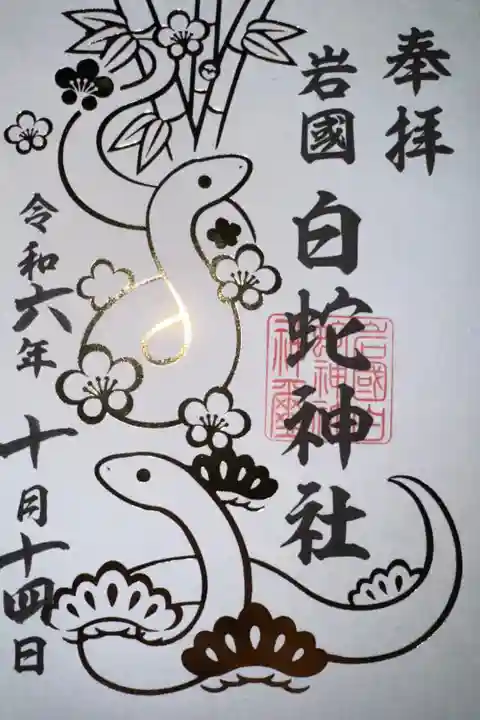 奉拝
岩國
白蛇神社
岩國白
蛇神社
神璽
令和六年
十月十四日